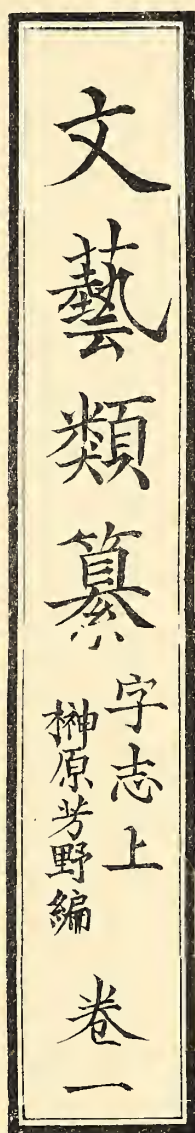 文藝類纂
字志上
榊原芳野編
卷一